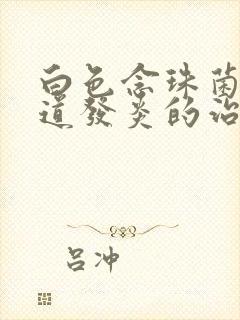 白色念珠菌
道發炎的治
呂冲